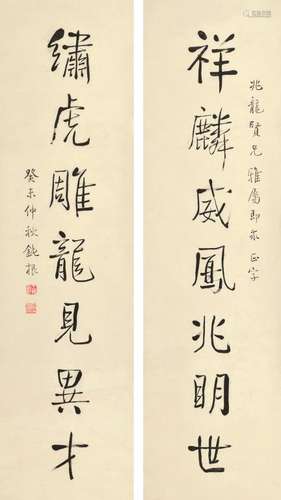 兆龍賢兄雅屬即希正字
祥麟威鳳兆明世
繡虎雕龍見異才
癸未仲秋鈍根